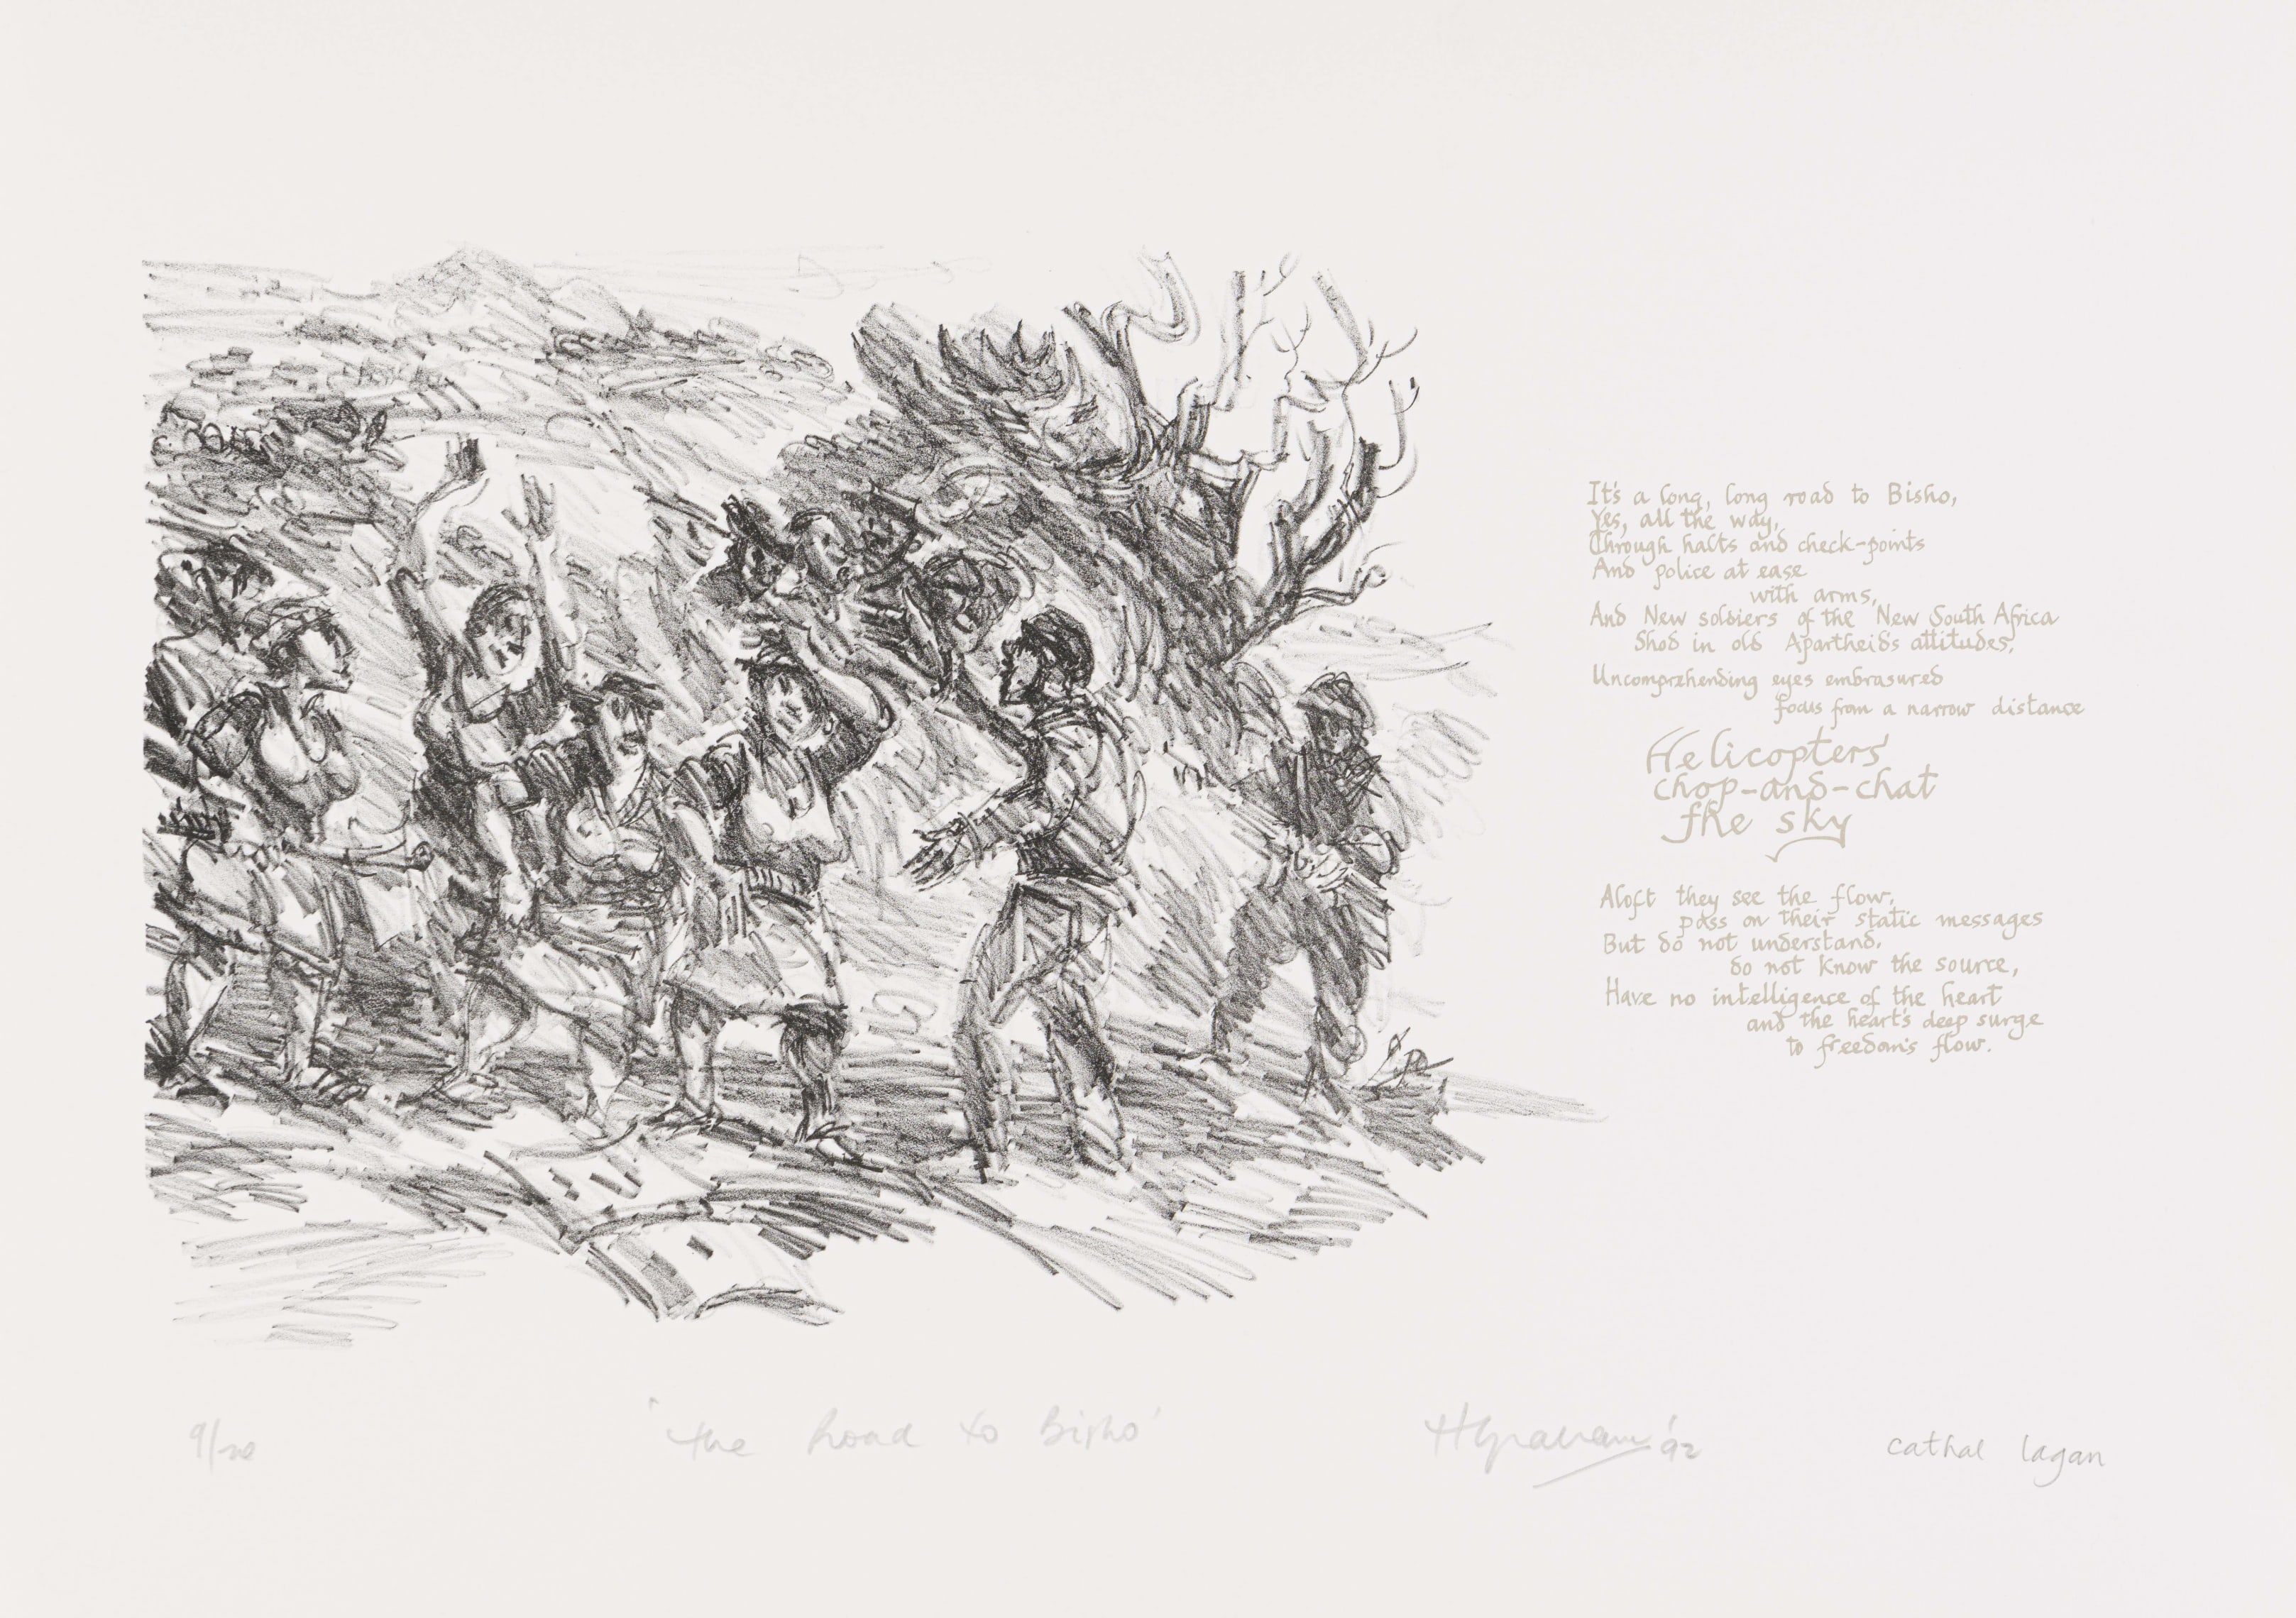 It's a long, long road to Bisho,
Yes, all the way,
Through halts and check-points
And police at ease
with arms,
And New soldiers of the New South Africa
Shod in old Apartheid's attitudes,
Uncomprehending eyes embrasured
focus from a narrow distance
Helicopters
chop-and-chat
the sky
Aloft they see the flow,
pass on their static messages
But do not understand,
do not know the source,
Have no intelligence of the heart
and the heart's deep surge
to freedom's flow.
'The Road to Bisho'
HGraham '92
Cathal Lagan